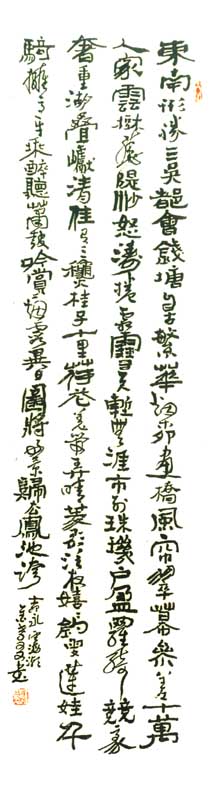 東南形勝三吳都會錢塘自古繁華烟柳畫橋風帘翠幕參差十萬
人家雲樹繞隄沙怒濤捲霜雪天塹無涯市列珠璣戶盈羅綺競豪
奢重湖疊巘清佳有三秋桂子十里荷花羌管弄晴菱歌泛夜嬉嬉釣叟蓮娃千
騎擁高牙乘醉聽簫鼓吟賞烟霞異日圖將好景歸去鳳池誇
柳永望海潮